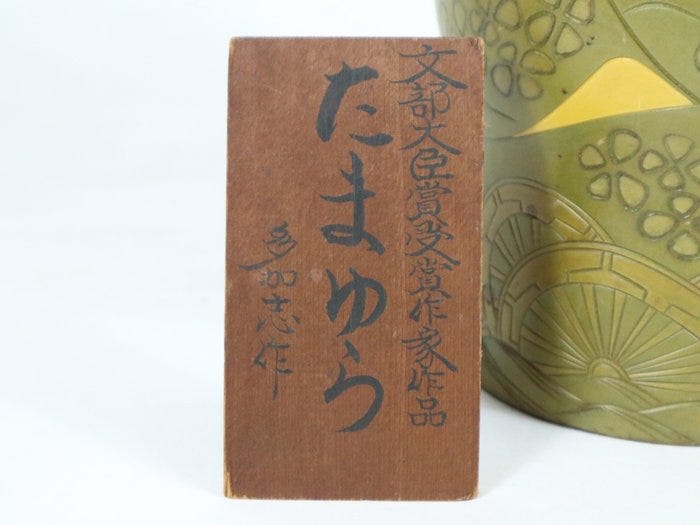 文部大臣賞受賞作家作品
たまゆら
多加志作